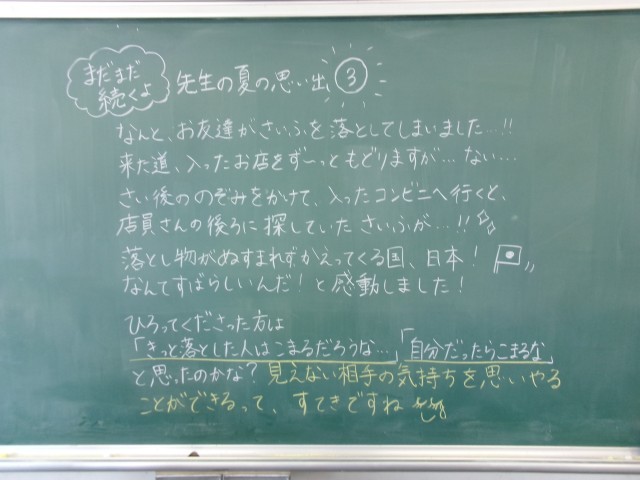 まだまだ
続くよ
先生の夏の思い出 ③
なんと、お友達がさいふを落としてしまいました…!!
来た道、入ったお店をず〜っともどりますが… ない…
さい後ののぞみをかけて、入ったコンビニへ行くと、
店員さんの後ろに探していたさいふが…!!
落とし物がぬすまれずかえってくる国、日本!
なんてすばらしいんだ!と感動しました!
ひろってくださった方は
「きっと落とした人はこまるだろうな…」「自分だったらこまるな」
と思ったのかな?見えない相手の気持ちを思いやる
ことができるって、すてきですね